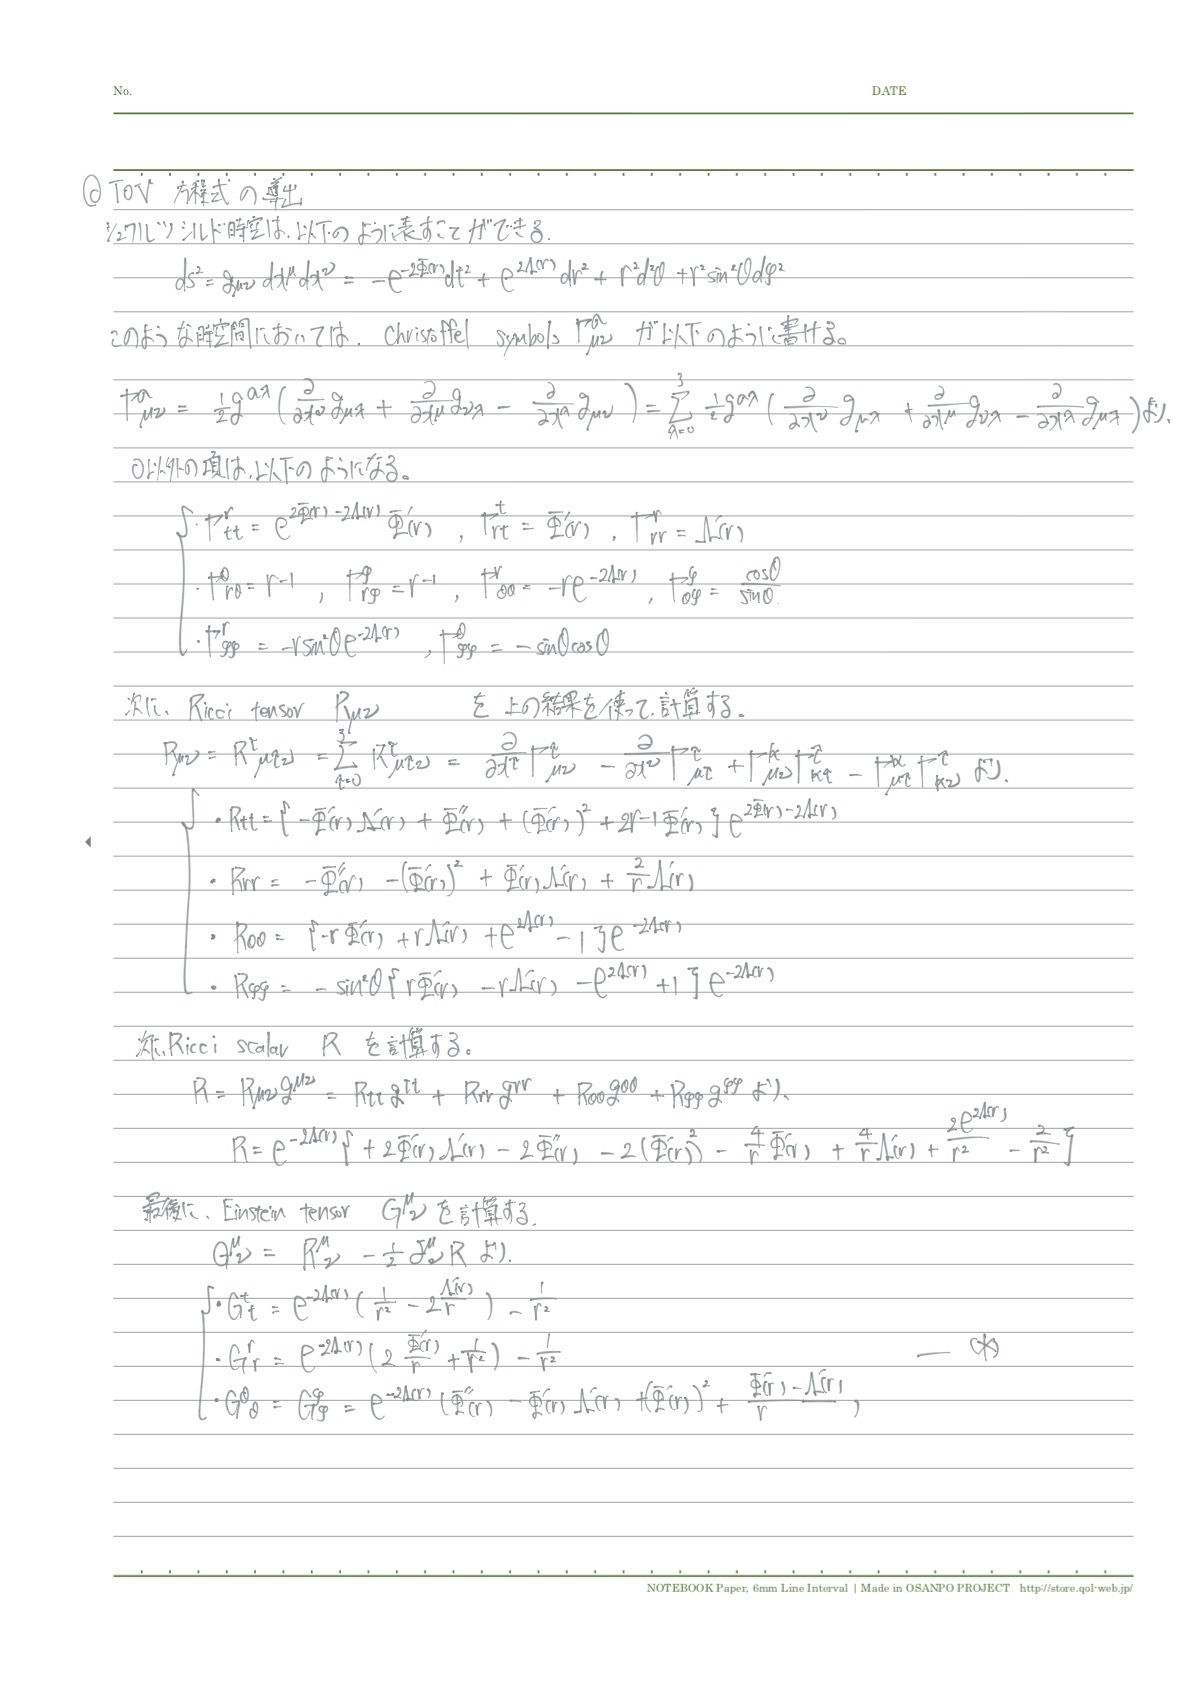 No. DATE
◎ TOV 方程式の導出
シュワルツシルド時空は、以下のように表すことができる.
ds² = g_{μν} dx^μ dx^ν = -e^{-2Φ(r)}dt² + e^{2Λ(r)}dr² + r²d²θ + r²sin²θdφ²
このような時空間においては、Christoffel symbols Γ^α_{μν} が以下のように書ける。
Γ^α_{μν} = 1/2 g^{αλ} ( ∂/∂x^ν g_{μλ} + ∂/∂x^μ g_{νλ} - ∂/∂x^λ g_{μν} ) = Σ_{λ=0}^{3} 1/2 g^{αλ} ( ∂/∂x^ν g_{μλ} + ∂/∂x^μ g_{νλ} - ∂/∂x^λ g_{μλ} ) より、
0以外の項は、以下のようになる。
・Γ^r_{tt} = e^{2Φ(r)-2Λ(r)} Φ'(r) , Γ^t_{rt} = Φ'(r) , Γ^r_{rr} = Λ'(r)
・Γ^θ_{rθ} = r^{-1} , Γ^φ_{rφ} = r^{-1} , Γ^r_{θθ} = -re^{-2Λ(r)} , Γ^φ_{θφ} = cosθ/sinθ
・Γ^r_{φφ} = -rsin²θe^{-2Λ(r)} , Γ^θ_{φφ} = -sinθcosθ
次に、Ricci tensor R_{μν} を上の結果を使って、計算する。
R_{μν} = R^τ_{μτν} = Σ_{τ=0}^{3} R^τ_{μτν} = ∂/∂x^τ Γ^τ_{μν} - ∂/∂x^ν Γ^τ_{μτ} + Γ^κ_{μν} Γ^τ_{κτ} - Γ^κ_{μτ} Γ^τ_{κν} より、
・R_{tt} = { -Φ'(r)Λ'(r) + Φ''(r) + (Φ'(r))² + 2r^{-1}Φ'(r) } e^{2Φ(r)-2Λ(r)}
・R_{rr} = -Φ''(r) - (Φ'(r))² + Φ'(r)Λ'(r) + 2/r Λ'(r)
・R_{θθ} = { -rΦ'(r) + rΛ'(r) + e^{2Λ(r)} - 1 } e^{-2Λ(r)}
・R_{φφ} = -sin²θ { rΦ'(r) - rΛ'(r) - e^{2Λ(r)} + 1 } e^{-2Λ(r)}
次に、Ricci scalar R を計算する。
R = R_{μν} g^{μν} = R_{tt} g^{tt} + R_{rr} g^{rr} + R_{θθ} g^{θθ} + R_{φφ} g^{φφ} より、
R = e^{-2Λ(r)} { + 2Φ'(r)Λ'(r) - 2Φ''(r) - 2(Φ'(r))² - 4/r Φ'(r) + 4/r Λ'(r) + 2e^{2Λ(r)}/r² - 2/r² }
最後に、Einstein tensor G^μ_ν を計算する.
G^μ_ν = R^μ_ν - 1/2 δ^μ_ν R より.
・G^t_t = e^{-2Λ(r)} ( 1/r² - 2 Λ'(r)/r ) - 1/r²
・G^r_r = e^{-2Λ(r)} ( 2 Φ'(r)/r + 1/r² ) - 1/r² — (*)
・G^θ_θ = G^φ_φ = e^{-2Λ(r)} ( Φ''(r) - Φ'(r)Λ'(r) + (Φ'(r))² + (Φ'(r) - Λ'(r))/r )
NOTEBOOK Paper, 6mm Line Interval | Made in OSANPO PROJECT http://store.qol-web.jp/